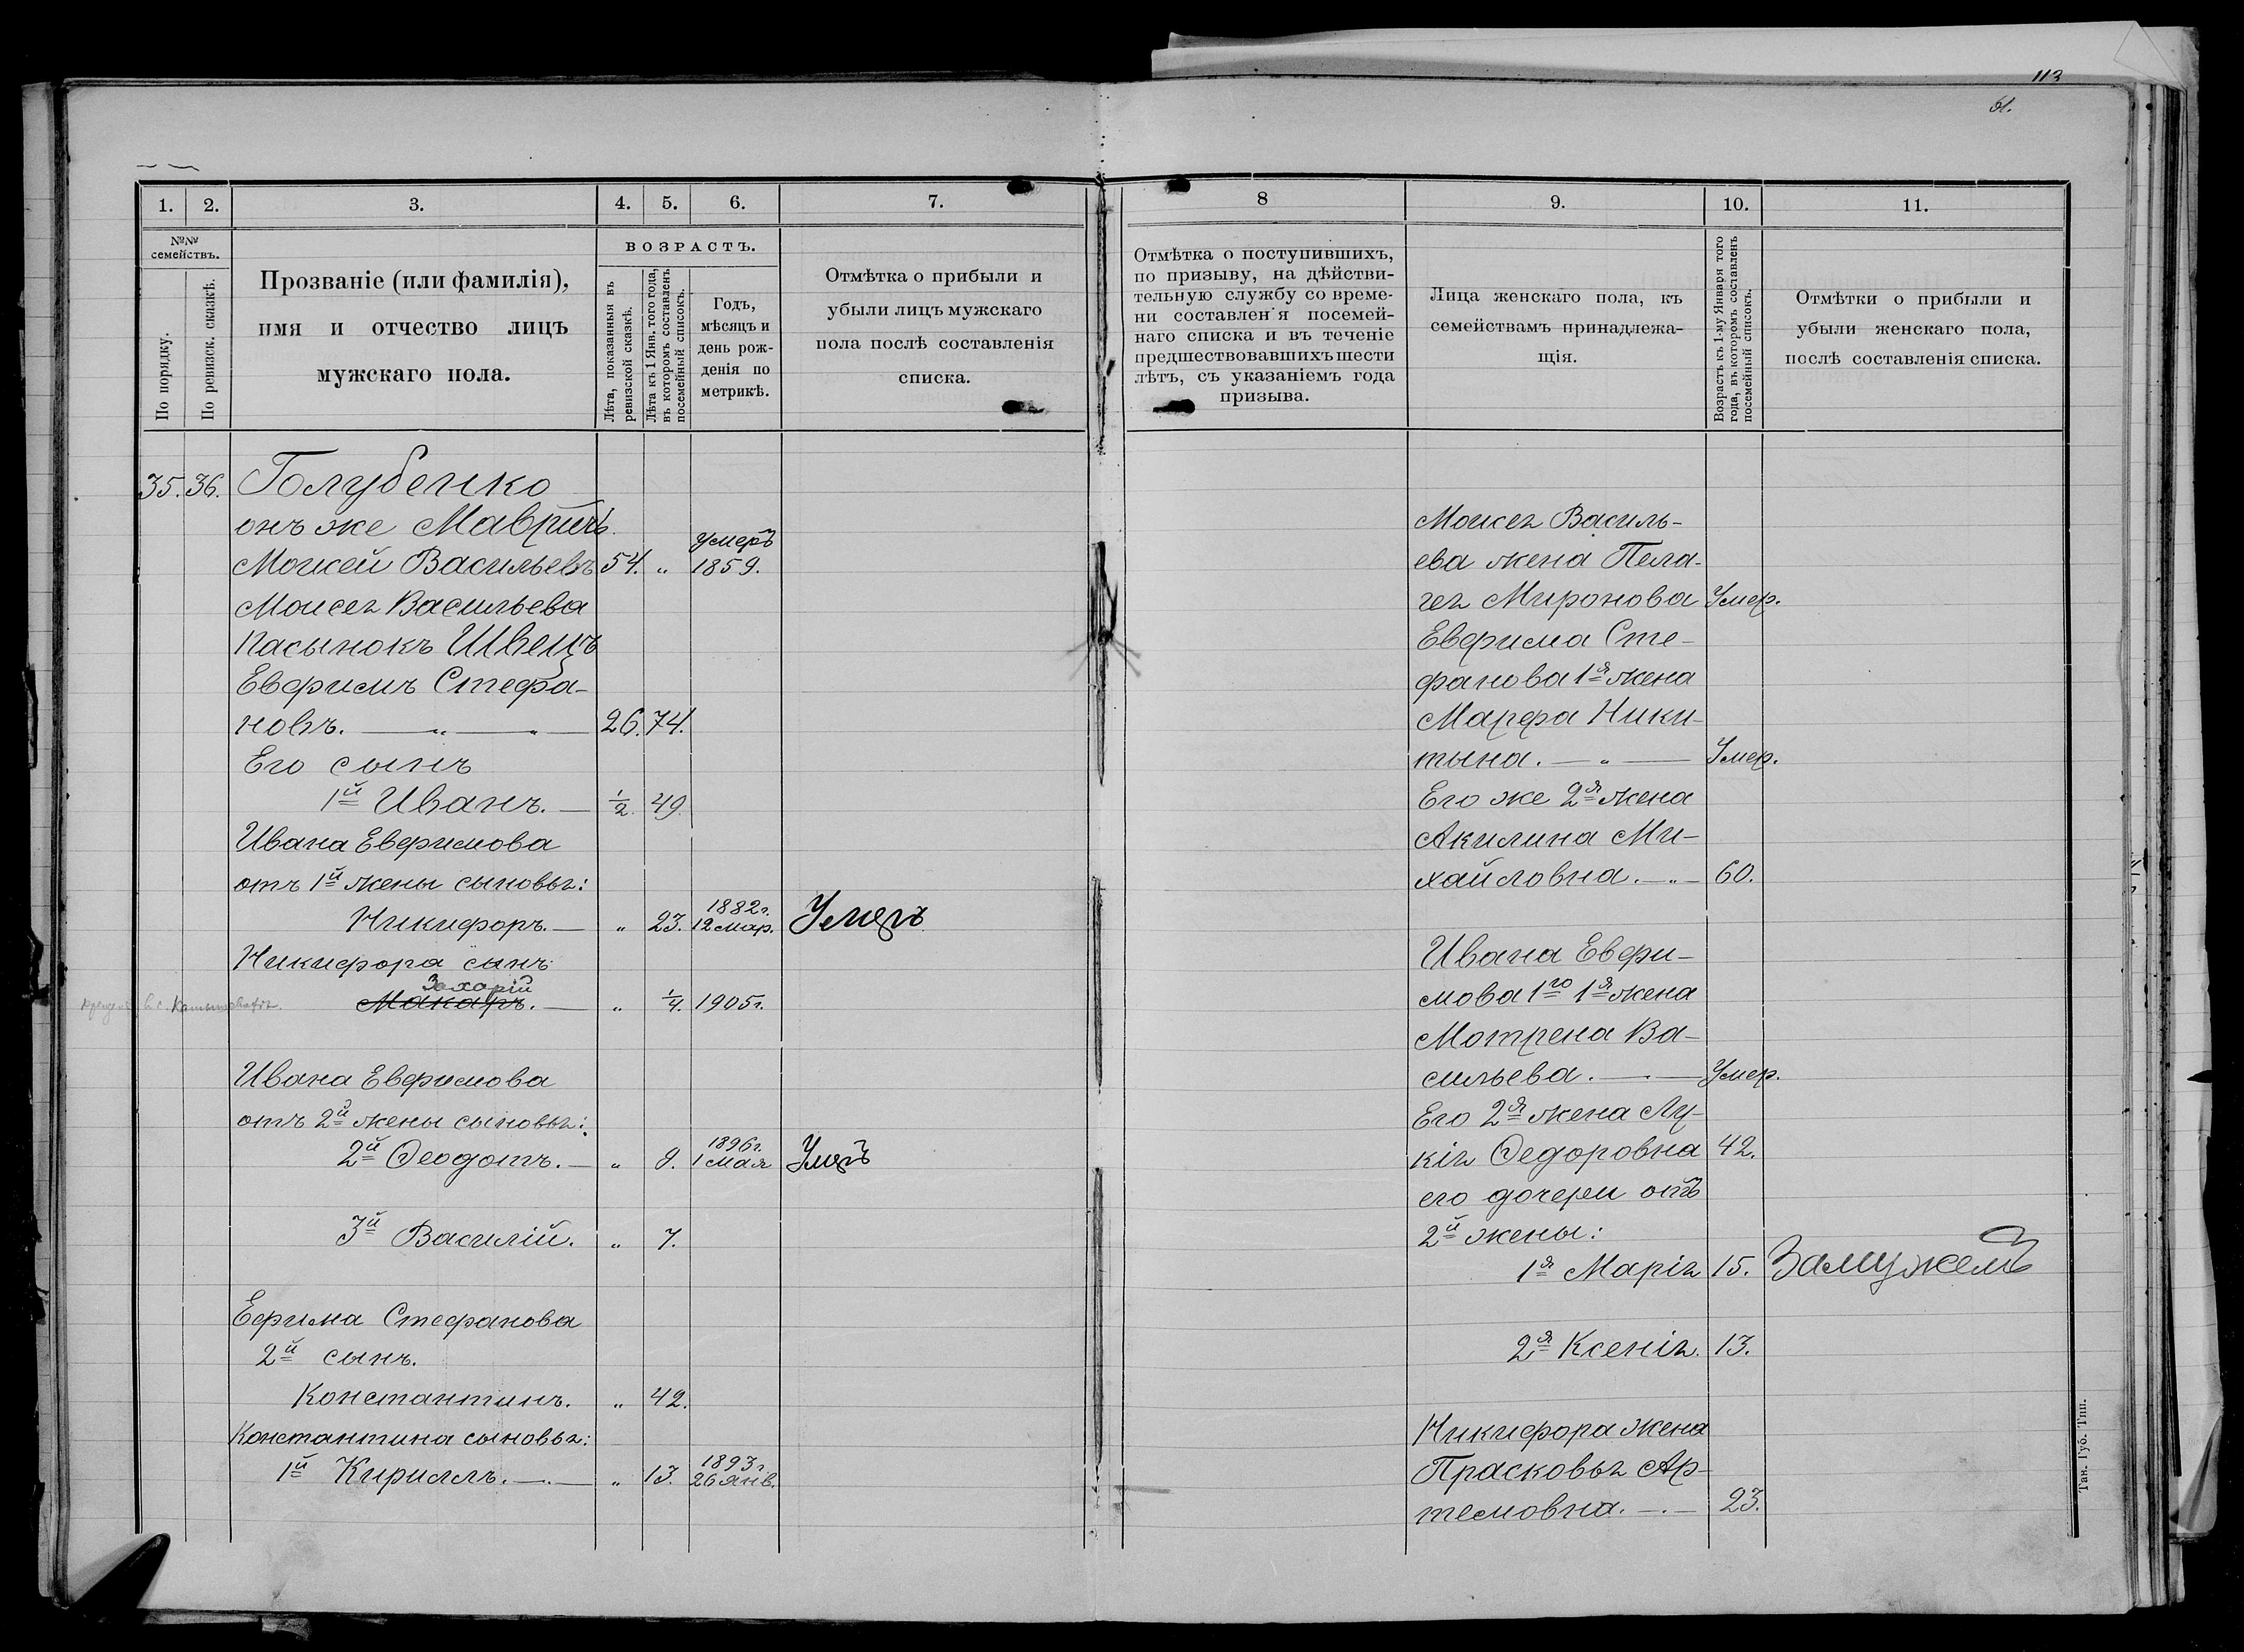 113
61.
1.
2.
3.
4.
5.
6.
7.
№№ семействъ.
По порядку.
По ревизск. сказкѣ.
Прозваніе (или фамилія),
имя и отчество лицъ
мужскаго пола.
ВОЗРАСТЪ.
Лѣта, показанныя въ
ревизской сказкѣ.
Лѣта къ 1 Янв. того года,
въ которомъ составленъ
посемейный списокъ.
Годъ,
мѣсяцъ и
день рож-
денія по
метрикѣ.
Отмѣтка о прибыли и
убыли лицъ мужскаго
пола послѣ составленія
списка.
35. 36. Голубенко
онъ же Мавричъ.
умеръ
Моисей Васильевъ 54. „ 1859.
Моисея Васильева
пасынокъ Швецъ
Евфимъ Стефа-
новъ. — „ — „ — 26. 74.
Его сынъ
1й Иванъ. — 1/2. 49.
Ивана Евфимова
отъ 1й жены сыновья:
1882г.
Никифоръ. — „ 23. 12 мар. Умеръ
Никифора сынъ
Захарій
в с.
Макаръ. — „ 1/4. 1905г.
Ивана Евфимова
отъ 2й жены сыновья:
1896г.
2й Ѳеодотъ. — „ 9. 1 мая Умеръ
3й Василій. „ 7.
Ефима Стефанова
2й сынъ.
Константинъ. „ 42.
Константина сыновья:
1893г.
1й Кириллъ. — „ — „ 13. 26 янв.
8
9.
10.
11.
Отмѣтка о поступившихъ,
по призыву, на дѣйстви-
тельную службу со време-
ни составленія посемей-
наго списка и въ теченіе
предшествовавшихъ шести
лѣтъ, съ указаніемъ года
призыва.
Лица женскаго пола, къ
семействамъ принадлежа-
щія.
Возрастъ къ 1-му Января того
года, въ которомъ составленъ
посемейный списокъ.
Отмѣтки о прибыли и
убыли женскаго пола,
послѣ составленія списка.
Моисея Василь-
ева жена Пела-
гея Миронова Умер.
Евфима Сте-
фанова 1я жена
Марфа Ники-
тына. — „ — Умер.
Его же 2я жена
Акилина Ми-
хайловна. — „ — 60.
Ивана Евфи-
мова 1го 1я жена
Мотрена Ва-
сильева. — „ — Умер.
Его 2я жена Лу-
кія Ѳедоровна 42.
его дочери отъ
2й жены:
1я Марія 15. Замужемъ
2я Ксенія. 13.
Никифора жена
Прасковья Ар-
темовна. — „ — 23.
Тав. Губ. Тип.